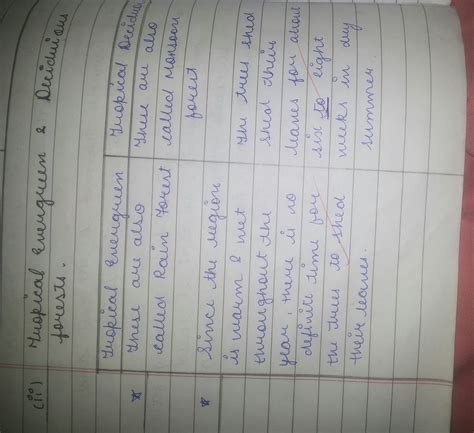 (ii) Tropical Evergreen & Deciduous
forests.
Tropical Evergreen
* These are also
called Rain Forest
* Since the region
is warm & wet
throughout the
year, there is no
definite time for
the trees to shed
their leaves.
Tropical Deciduou
These are also
called Monsoon
forest
The trees shed
shed their
leaves for about
six to eight
weeks in dry
summer